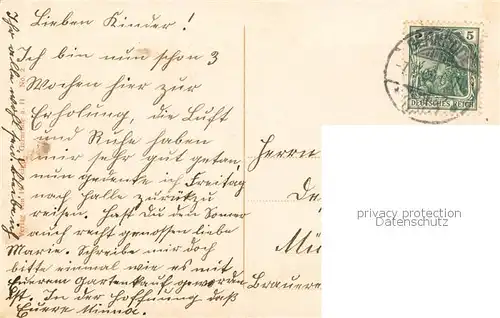 Lieben Kinder!
Ich bin nun schon 3
Wochen hier zur
Erholung, die Luft
und Ruhe haben
mir sehr gut getan
nun gedenke ich Freitag
nach Halle zurück zu
reisen. Hast Du den Sommer
auch recht genossen liebe
Marie. Schreibe mir doch
bitte einmal wie es mit
Euerem Gartenkauf geworden
ist. In der Hoffnung daß
Ihr alle wohl seid
Euere Minna.
5
DEUTSCHES REICH
Herrn
Mü
Brauere
privacy protection
datenschutz